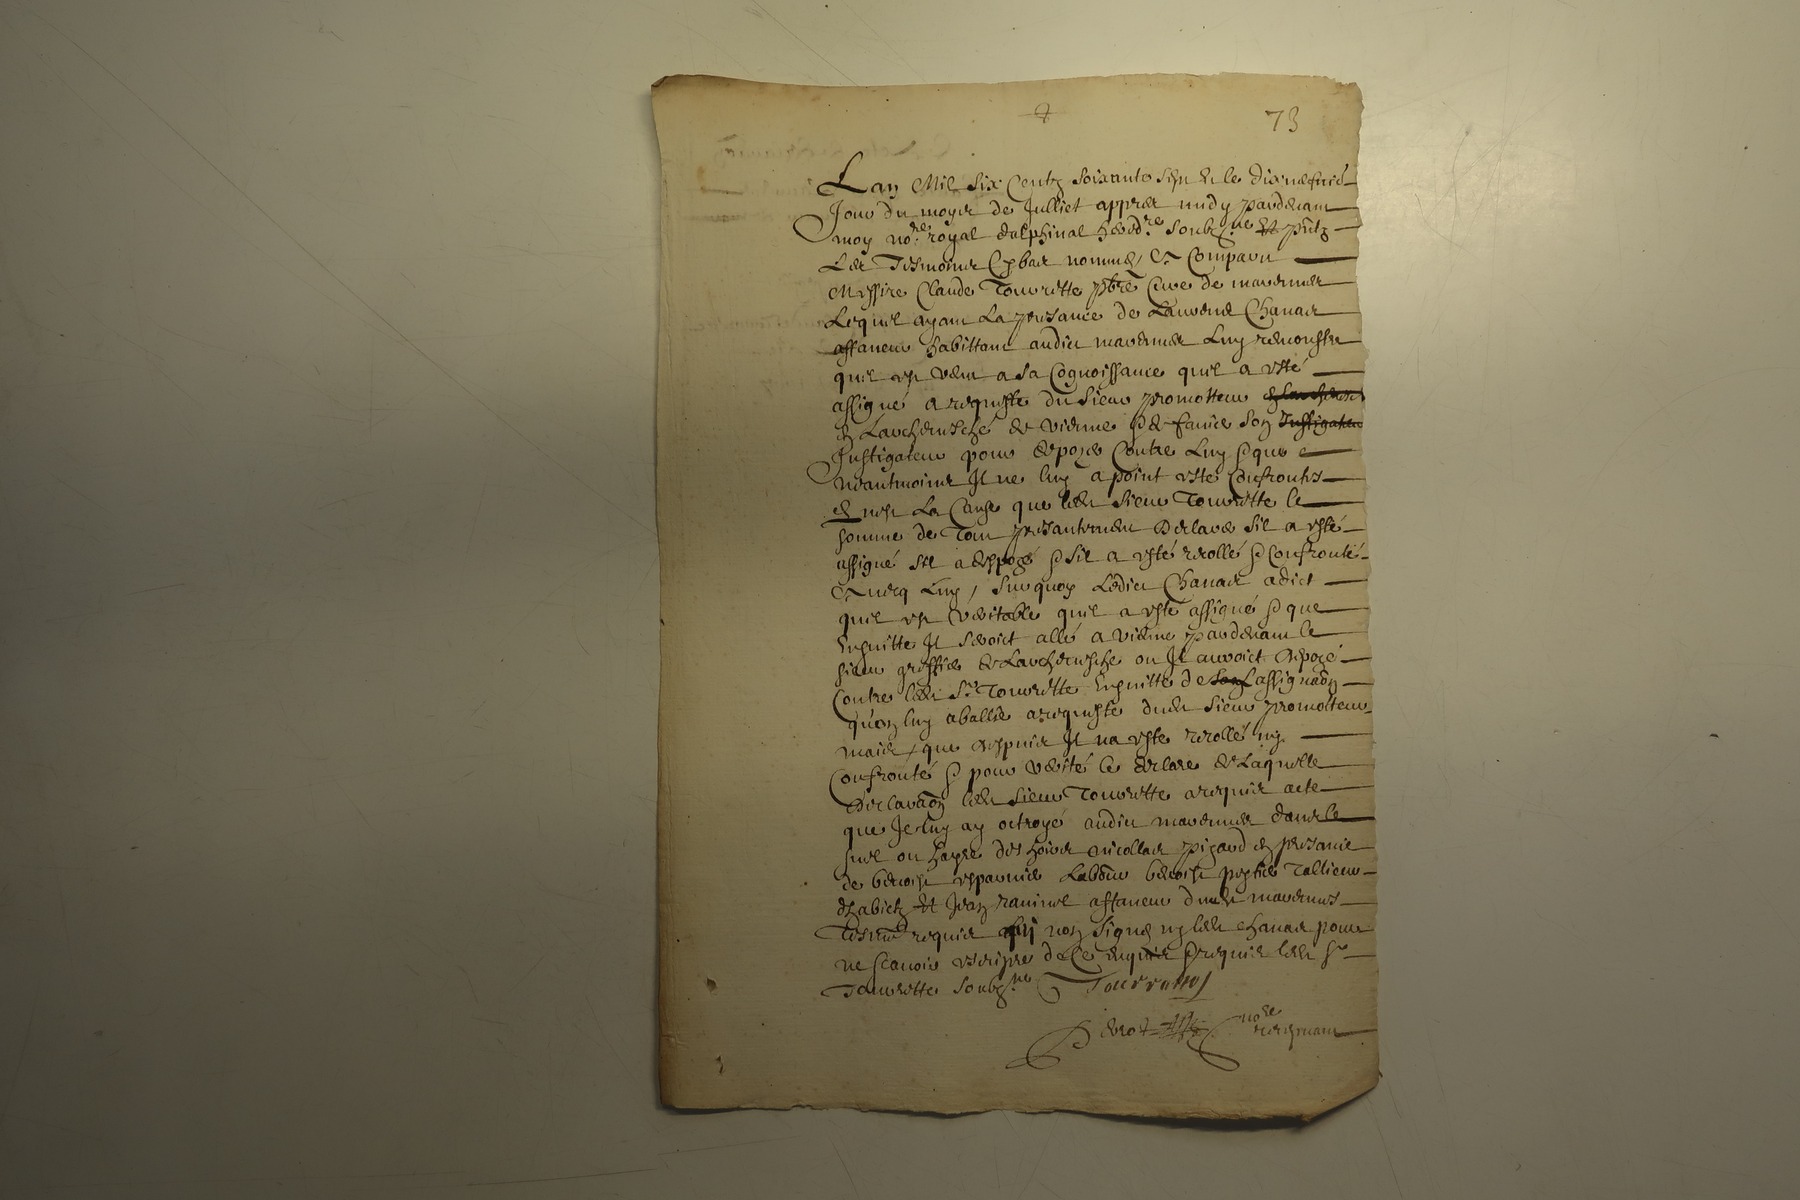 73
Lan Mil Six Centz Soixante Sept & le dix
Jour du moys de Julliet appres midy pardevant
moy no.re royal dalphinal hered.re soubz.ne et pntz
Les Tesmoins bas nommes Compareu
Messire Claude Tourrette pbre Cure de
Lequel ayant La presance de Laurens Chanas
affaneur habittant audit Luy remonstre
quil est venu a sa Cognoissance quil a esté
assigné a requeste du Sieur promotteur
Larchevesché de vienne & de son Instigateur
Instigateur pour depozer Contre Luy & que
neantmoins Il ne luy a point esté Confronté
& Cause que led Sieur Tourrette le
somme de presantement declarer sil a esté
assigné sil a depozé & sil a esté recollé & Confronté
avecq Luy, Surquoy Ledict Chanas a dict
quil est veritable quil a esté assigné & que
Ensuitte Il seroict allé a vienne pardevant le
sieur greffier de Larchevesche ou Il auroict depozé
Contre led Sr Tourrette Ensuitte de son Lassignaon
quon luy a ballié a requeste dud Sieur promotteur
mais que despuis Il na esté recollé ny
Confronté & pour verité le declare de Laquelle
declaraon led Sieur Tourrette a requis acte
que Je luy ay octroyé audit dans le
des hoirs Nicollas en presance
de benoist Labour benoist Tallieur
Jean affaneur dud
Tesm requis non Signes ny led Chanas pour
ne scavoir escripre de Ce enquis & requis led Sr
Tourrette soubz.ne Tourrette
no.re